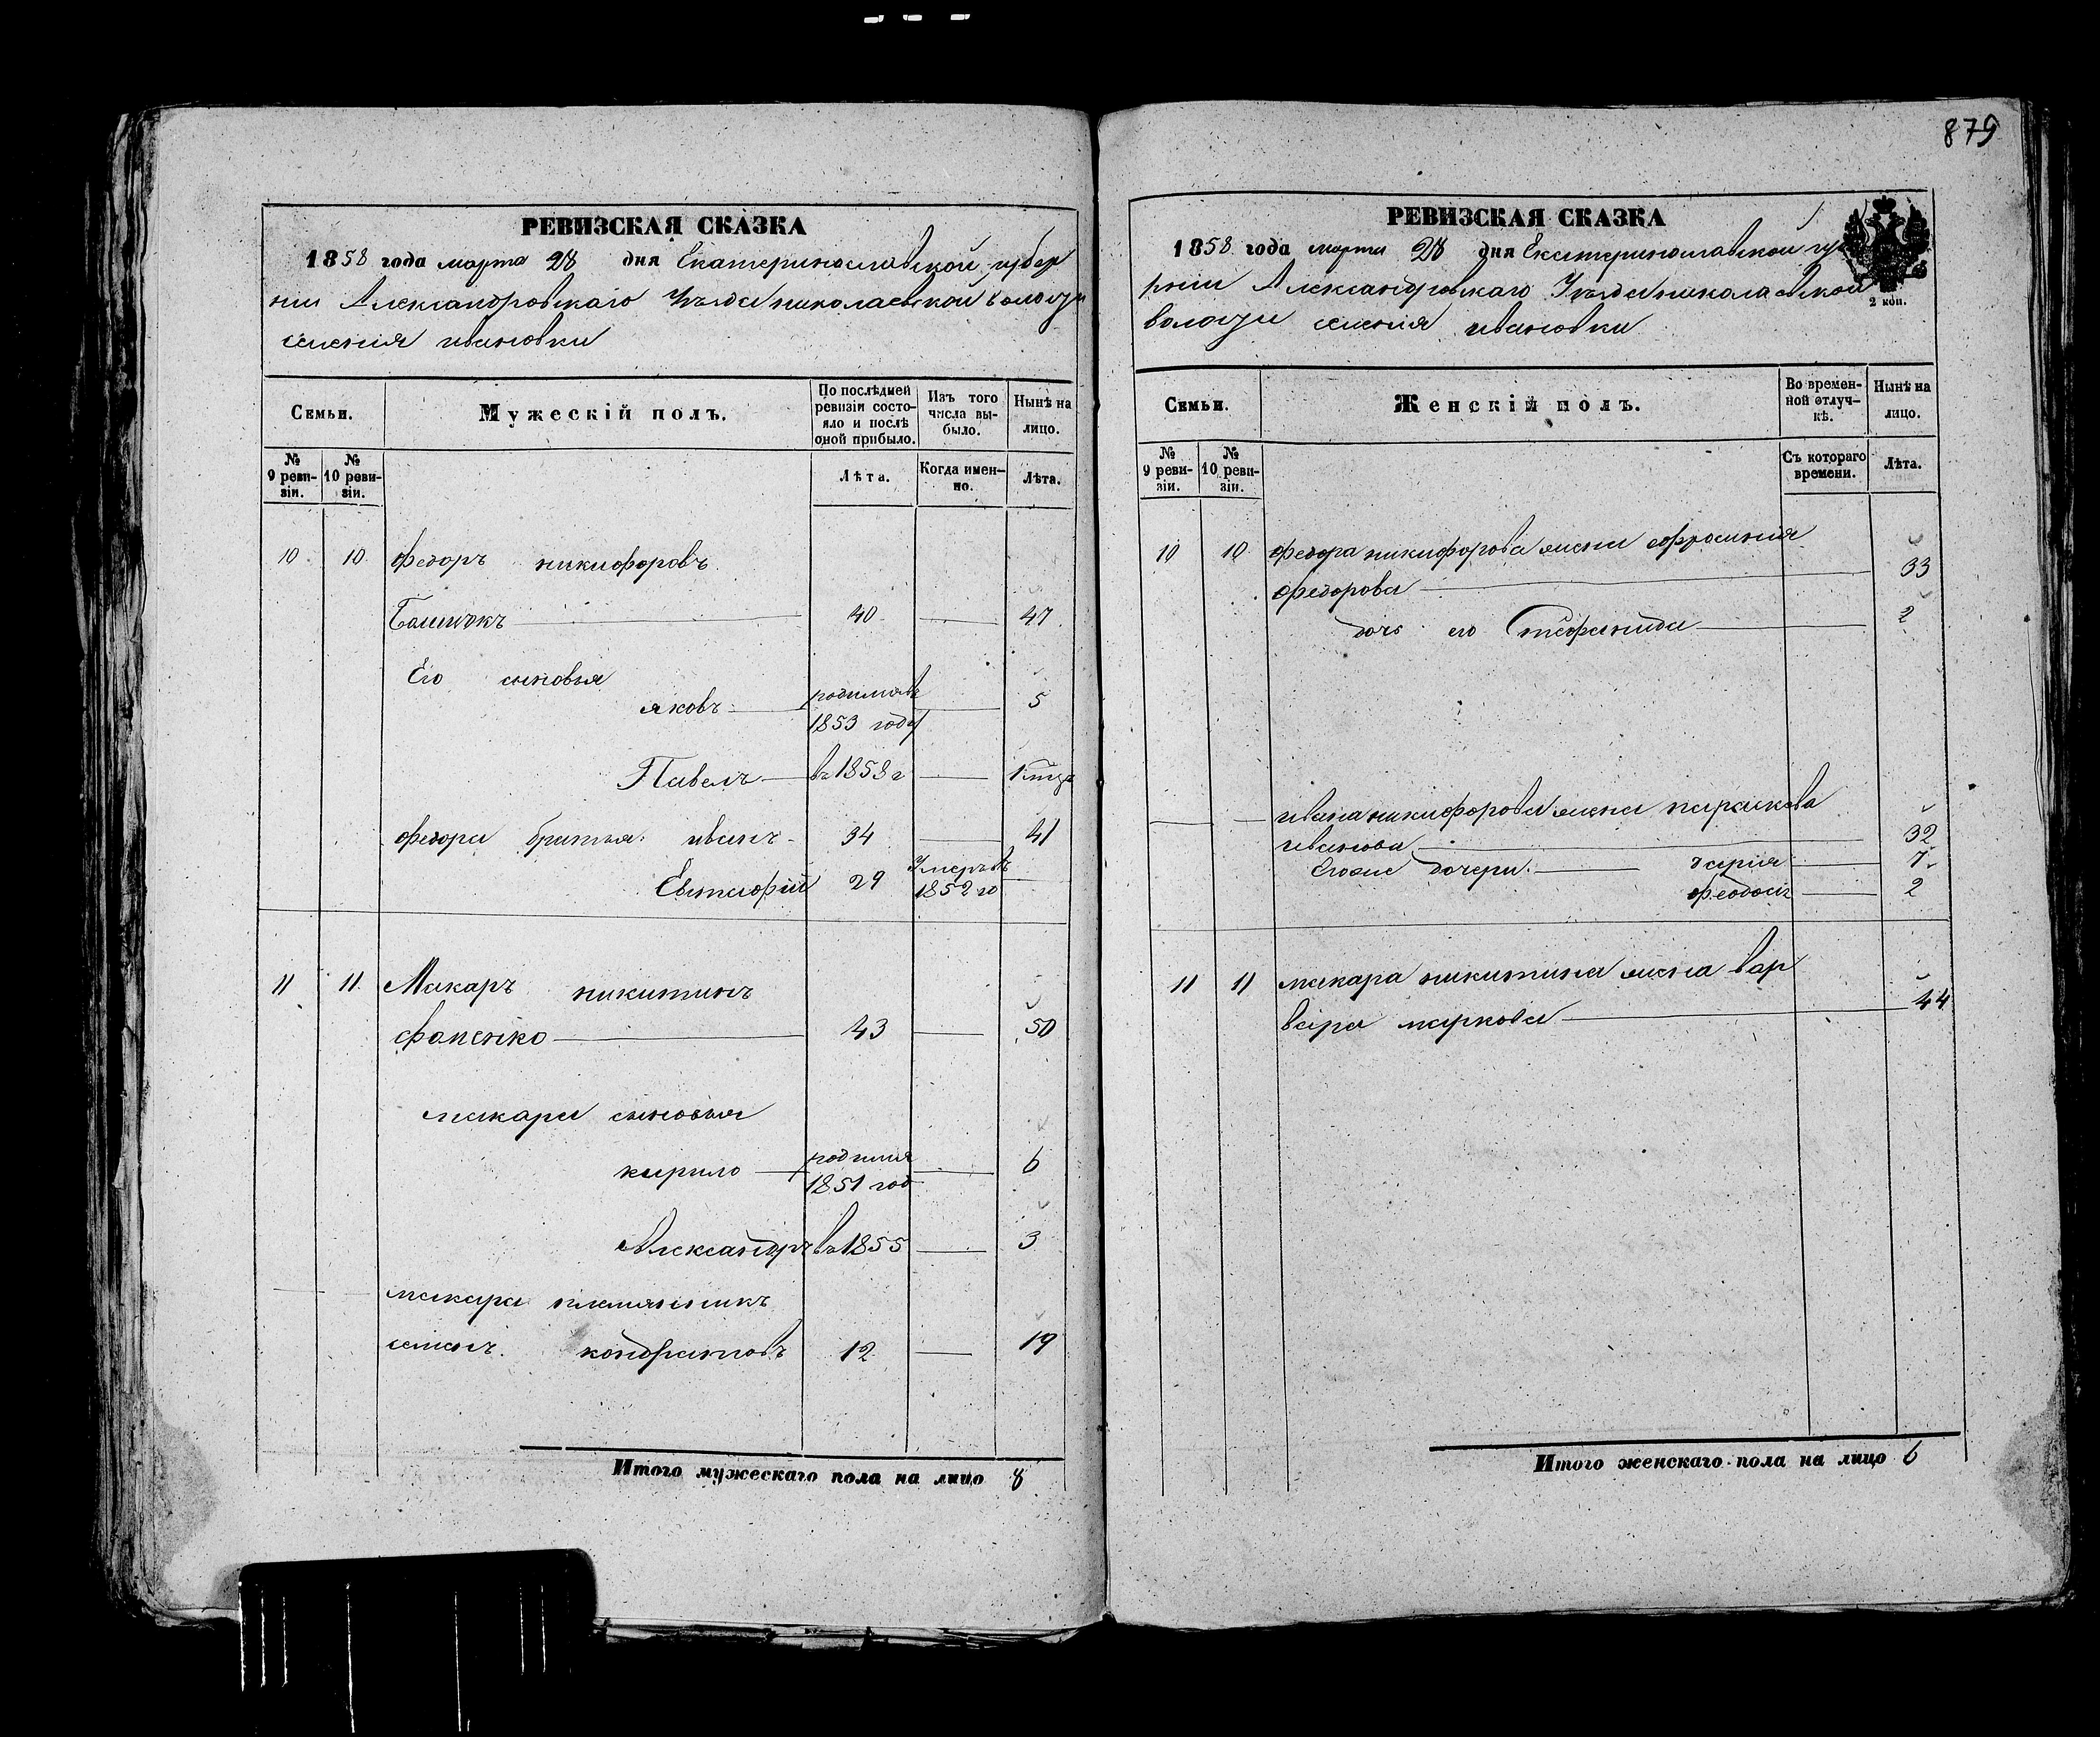 879
РЕВИЗСКАЯ СКАЗКА
1858 года марта 28 дня Екатеринославской губер
нии Александровскаго Уѣзда николаевской волости
селения ивановки
Семьи.
Мужескій полъ.
По послѣдней ревизіи состо-яло и послѣ оной прибыло.
Изъ того числа вы-было.
Нынѣ на лицо.
№ 9 реви-зіи.
№ 10 реви-зіи.
Лѣта.
Когда имен-но.
Лѣта.
10 10 федоръ никифоровъ
40 — 47
Его сыновья
яковъ родился въ 1853 году — 5
Павелъ въ 1858 г —
федора братья иванъ 34 — 41
Евтифій 29 Умеръ въ 1852 го —
11 11 Макаръ никитинъ
фоменко 43 — 50
макара сыновья
кирило родился 1851 год — 6
Александръ въ 1855 — 3
макара племянникъ
семенъ кондратовъ 12 — 19
Итого мужескаго пола на лицо 8
РЕВИЗСКАЯ СКАЗКА
1858 года марта 28 дня Екатеринославской гу
рнии Александровскаго Уѣзда николаевской
волости селения ивановки
2 коп.
Семьи.
Женскій полъ.
Во времен-ной отлуч-кѣ.
Нынѣ на лицо.
№ 9 реви-зіи.
№ 10 реви-зіи.
Съ котораго времени.
Лѣта.
10 10 федора никифорова жена ефросиния
федорова — 33
дочь его Стефанида — 2
ивана никифорова жена параскева
иванова — 32
Егоже дочери — дария — 7
феодосия — 2
11 11 макара никитина жена вар
вара маркова — 44
Итого женскаго пола на лицо 6